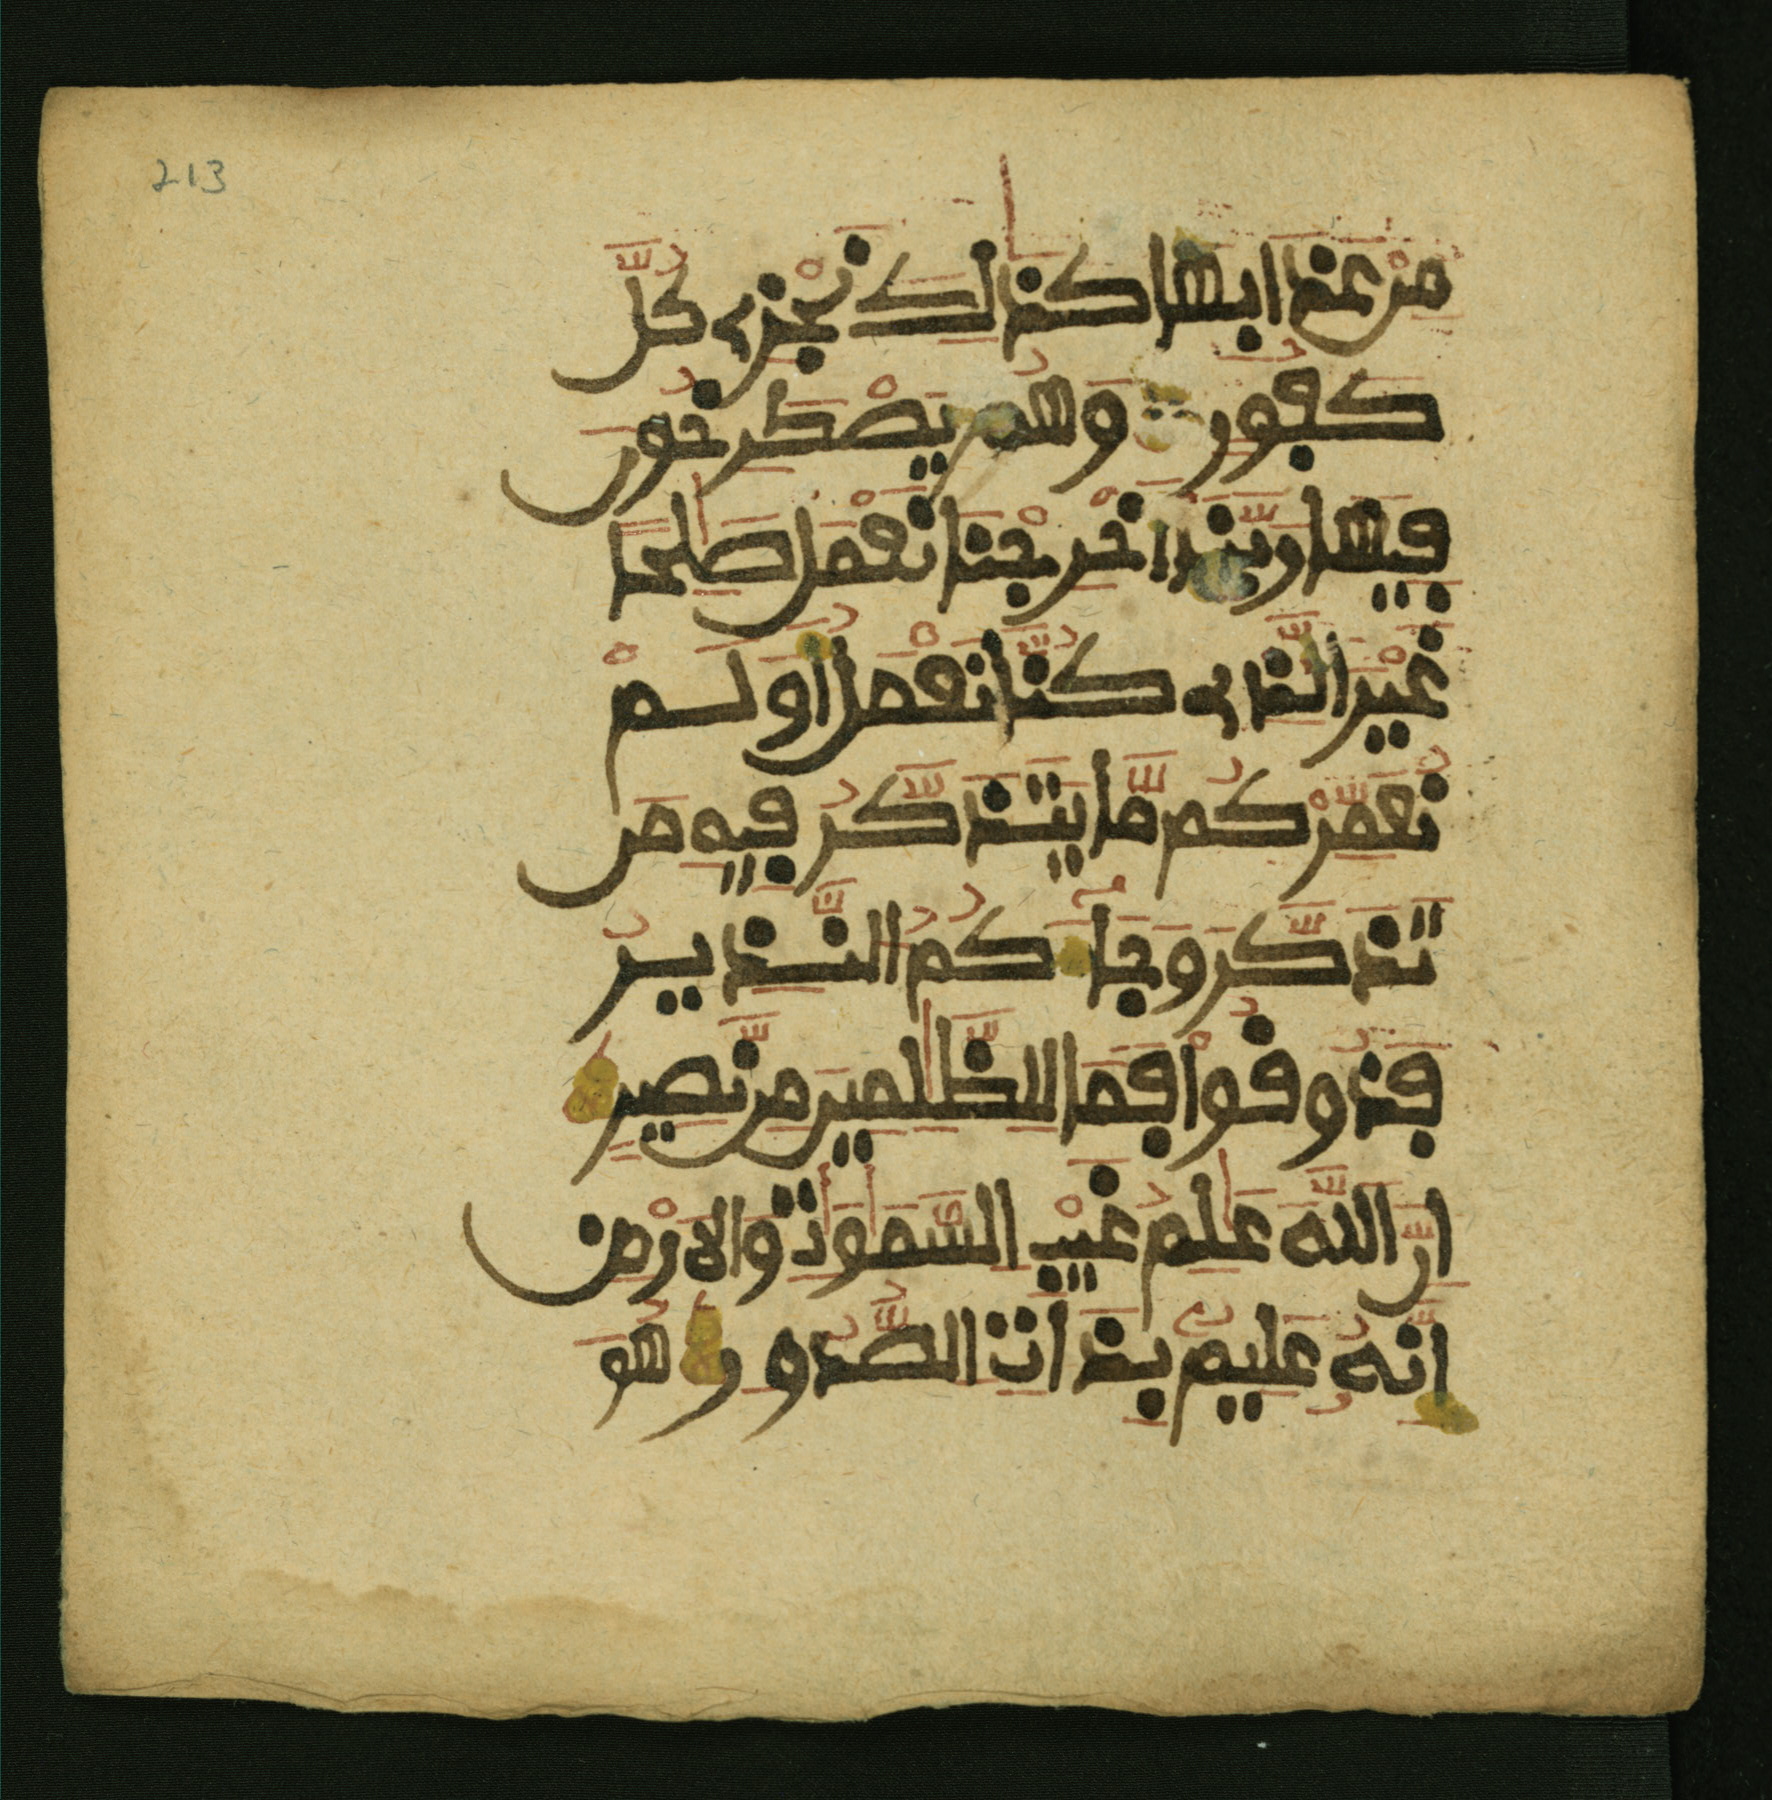 213
مِنْ عَذَابِهَا كَذَٰلِكَ نَجْزِي كُلَّ
كَفُورٍ وَهُمْ يَصْطَرِخُونَ
فِيهَا رَبَّنَا أَخْرِجْنَا نَعْمَلْ صَٰلِحًا
غَيْرَ الَّذِي كُنَّا نَعْمَلُ أَوَلَمْ
نُعَمِّرْكُم مَّا يَتَذَكَّرُ فِيهِ مَن
تَذَكَّرَ وَجَآءَكُمُ النَّذِيرُ
فَذُوقُواْ فَمَا لِلظَّٰلِمِينَ مِن نَّصِيرٍ
إِنَّ اللَّهَ عَٰلِمُ غَيْبِ السَّمَٰوَٰتِ وَالْأَرْضِ
إِنَّهُ عَلِيمٌ بِذَاتِ الصُّدُورِ هُوَ